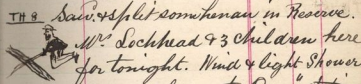 TH 8 Saw. & split some henau in Reserve.
Mrs Lochhead & 3 children here
for tonight. Wind & light Shower